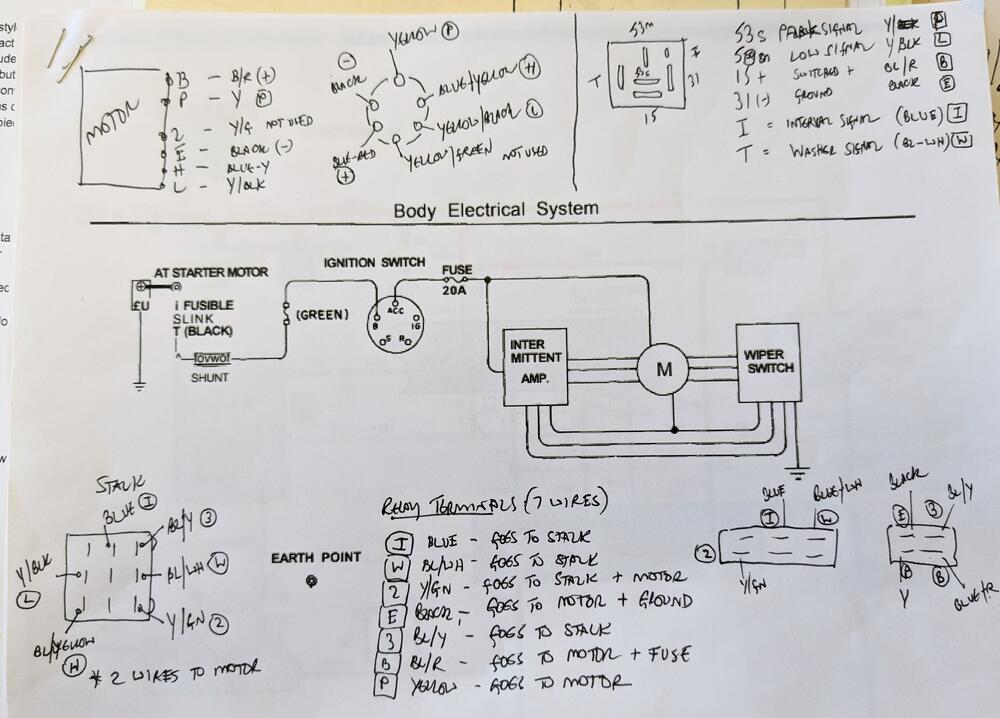 MOTOR
B - B/R (+)
P - Y P
2 - Y/G NOT USED
E - BLACK (-)
H - BLUE-Y
L - Y/BLK
YELLOW P
(-)
BLACK
BLUE/YELLOW H
YELLOW/BLACK L
YELLOW/GREEN NOT USED
BLUE-RED
(+)
53M
I
T
53s
31
15
53s PARK SIGNAL Y P
LOW SIGNAL Y BLK L
15+ SWITCHED + BL/R B
31(-) GROUND BLACK E
I = INTERVAL SIGNAL (BLUE) I
T = WASHER SIGNAL (BL-WH) W
Body Electrical System
AT STARTER MOTOR
£U
i FUSIBLE
SLINK
T (BLACK)
SHUNT
(GREEN)
IGNITION SWITCH
ACC
B
IG
S
R
FUSE
20A
INTER
MITTENT
AMP.
M
WIPER
SWITCH
STALK
BLUE I
BL/Y 3
Y/BLK
L
BL/WH W
Y/GN 2
BL/YELLOW
W
* 2 WIRES TO MOTOR
EARTH POINT
RELAY TERMINALS (7 WIRES)
I BLUE - GOES TO STALK
W BL/WH - GOES TO STALK
2 Y/GN - GOES TO STALK + MOTOR
E BLACK - GOES TO MOTOR + GROUND
3 BL/Y - GOES TO STALK
B BL/R - GOES TO MOTOR + FUSE
P YELLOW - GOES TO MOTOR
BLUE
BLUE/WH
I
W
2
Y/GN
BLACK
BL/Y
E
3
P
B
Y
BLUE/R